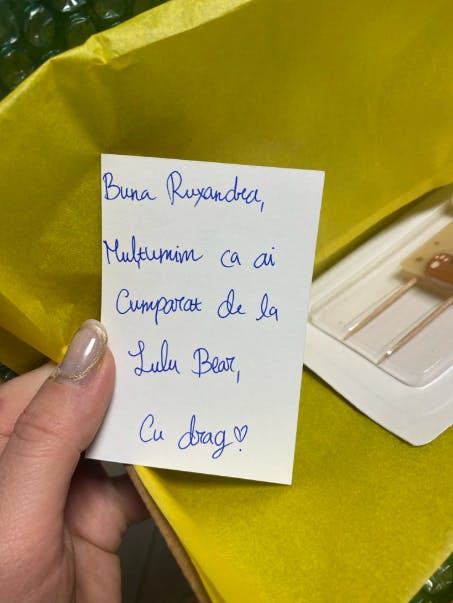 Buna Ruxandra,
Multumim ca ai
Cumparat de la
Lulu Bear,
Cu drag♡